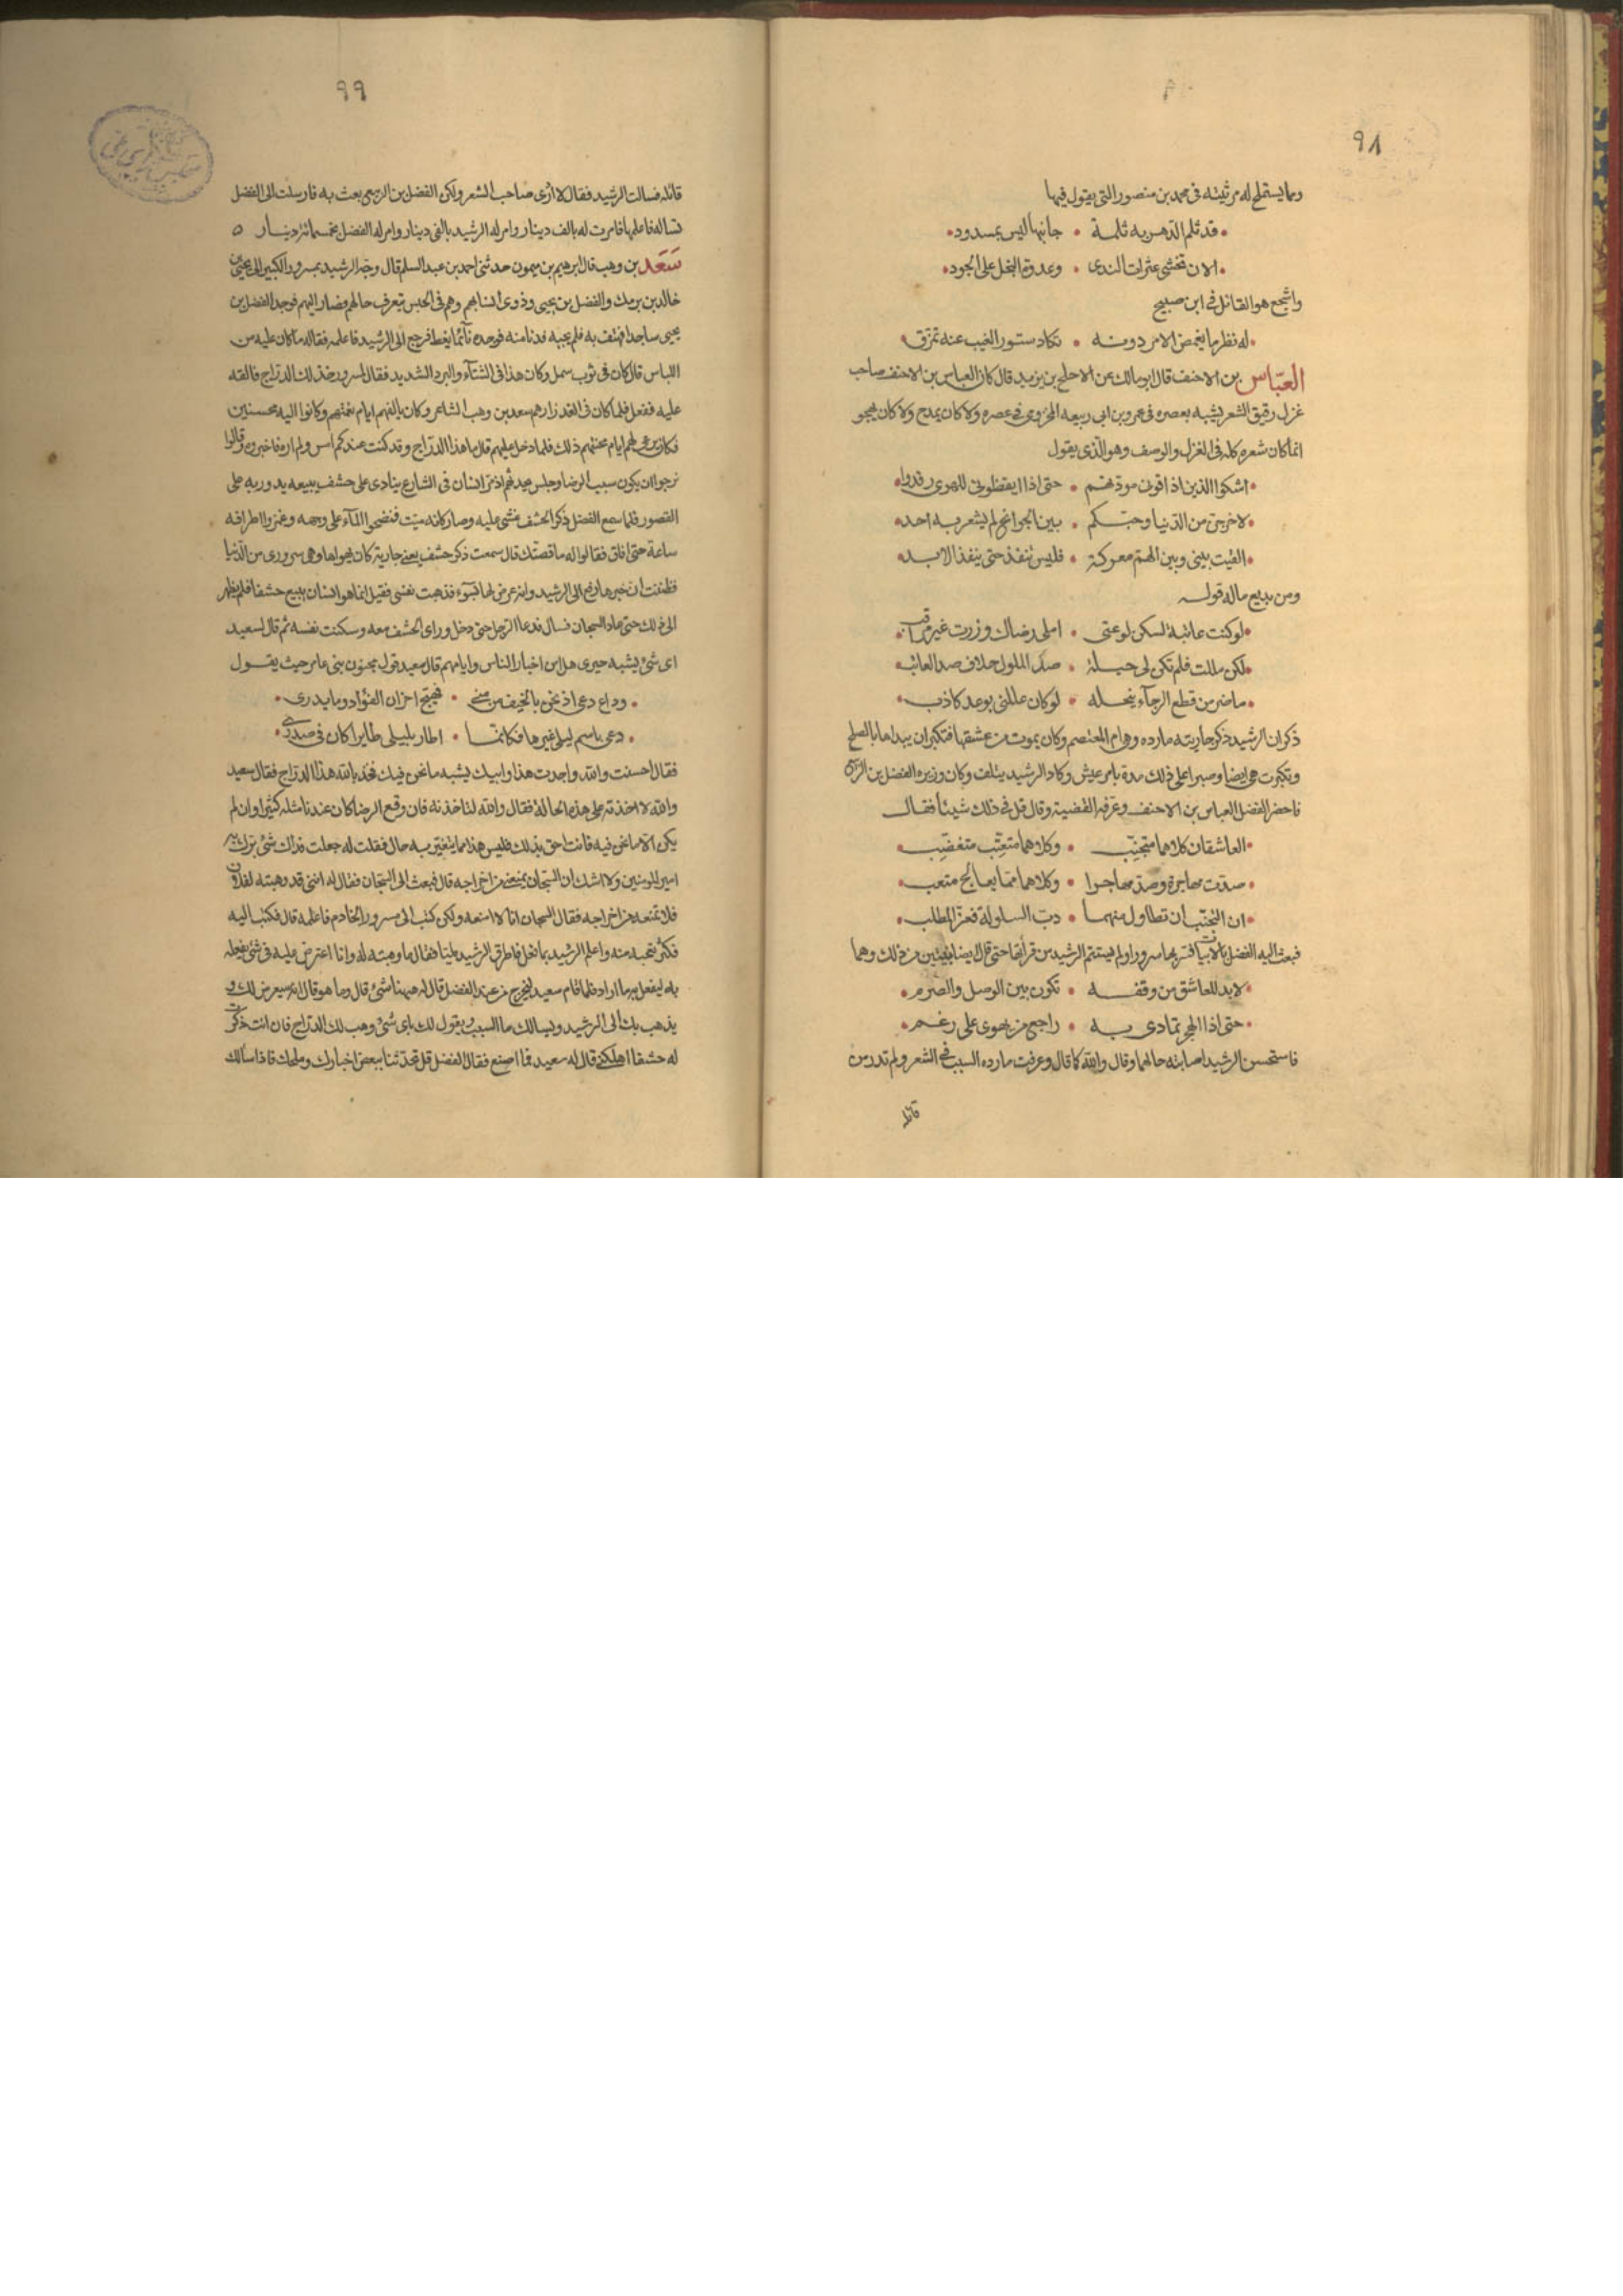 ٩٨
ومما يستملح له مرثيته فى محمد بن منصور التى يقول فيها
قد ثلم الدهر به ثلمة • جانبها ليس بمسدود
الان تخشى عثرات الندى • وعدوة البخل على الجود
واشجع هو القائل فى ابن صبيح
له نظر ما يغمض الامر دونه • تكاد ستور الغيب عنه تمزق
العبّاس بن الاحنف قال ابو مالك عن الاحلج بن يزيد قال كان العباس بن الاحنف صاحب
غزل رقيق الشعر يشبه بعصره فى عمرو بن ابى ربيعه المخزومى فى عصره ولا كان يمدح ولا كان يهجو
انما كان شعره كله فى الغزل والوصف وهو الذى يقول
اشكوا الذين اذاقونى مودتهم • حتى اذا ايقظونى للهوى رقدوا
لاخرجن من الدنيا وحبّكم • بين الجوانح لم يشعر به احد
الفيت بينى وبين الهم معركة • فليس تنفد حتى ينفذ الابد
ومن بديع ماله قوله
لو كنت عاتبة لسكن لوعتى • املى رضاك وزرت غير مراقب
لكن مللت فلم تكن لى حيلة • صد الملول خلاف صد العاتب
ما ضر من قطع الرجآء ببخله • لو كان عللنى بوعد كاذب
ذكر ان الرشيد ذكر جاريته مارده وهى ام المعتصم وكان يموت من عشقها فتكبر ان يبداها بالصلح
وتكبرت هى ايضا وصبرا على ذلك مدة بامر عيش وكاد الرشيد يتلف وكان وزيره الفضل بن الربيع
فاحضر الفضل العباس بن الاحنف وعرفه القضية وقال قل فى ذلك شيئا فقال
العاشقان كلاهما متجنّب • وكلاهما متعتّب متغضّب
صدّت مهاجرة وصدّ مهاجرا • وكلاهما مما يعالج متعب
ان التجنّب ان تطاول منهما • دبّ السلو له فعزّ المطلب
فبعث اليه الفضل بالابيات فسر بها سرورا ولم يستتم الرشيد من قرأتها حتى قال ايضا بيتين من ذلك وهما
لا بد للعاشق من وقفه • تكون بين الوصل والصرم
حتى اذا الهجر تمادى به • راجع من يهوى على رغم
فاستحسن الرشيد اصابته حالهما وقال والله كما قال وعرفت مارده السبب فى الشعر ولم تدر من
قائله
٩٩
قائله فسالت الرشيد فقال لا ادرى صاحب الشعر ولكن الفضل بن الربيع بعث به فارسلت الى الفضل
تساله فاعلمها فامرت له بالف دينار وامر له الرشيد بالفى دينار وامر له الفضل بخمسمائة دينار ٥
سَعَد بن وهب قال ابرهيم بن ميمون حدثنى احمد بن عبد السلم قال وجّه الرشيد بمسرور الكبير الى يحيى بن
خالد بن برمك والفضل بن يحيى وذوى انسابهم وهم فى الحبس يتعرف حالهم فصار اليهم فوجد الفضل بن
يحيى ساجدا فهتف به فلم يجبه فدنا منه فوجده نآئما يغط فرجع الى الرشيد فاعلمه فقال له ما كان عليه من
اللباس قال كان فى ثوب سمل وكان هذا فى الشتآء والبرد الشديد فقال لمسرور خذ لك الدراج فالقه
عليه ففعل فلما كان فى الغد زارهم سعد بن وهب الشاعر وكان يالفهم ايام نعمتهم وكانوا اليه محسنين
فكان يزورهم ايام محنتهم ذلك فلما دخل عليهم قال ما هذا الدراج وقد كنت عندكم امس ولم اره فاخبروه وقالوا
نرجوا ان يكون سبب الرضا وجلس عندهم اذ مرّ انسان فى الشارع ينادى على خشف يبيعه يدور به على
القصور فلما سمع الفضل ذكر الخشف غشى عليه وصار كانه ميت فنضحوا المآء على وجهه وغمزوا اطرافه
ساعة حتى افاق فقالوا له ما قصّتك قال سمعت ذكر خشف يعنى جارية كان يهواها وهى سرورى من الدنيا
فظننت ان خبرها رفع الى الرشيد وانه عرض لها بسوء فذهبت نفسى فقيل انما هو انسان يبيع خشفا فلم ينظر
الى ذلك حتى عاد السجان فسال فدعا الرجل حتى دخل وراى الخشف معه وسكنت نفسه ثم قال لسعيد
اى شئ يشبه خبرى هذا من اخبار الناس وايامهم قال سعيد قول مجنون بنى عامر حيث يقول
وداع دعى اذ نحن بالخيف من منى • فهيّج احزان الفؤاد وما يدرى
دعى باسم ليلى غيرها فكانّما • اطار بليلى طايرا كان فى صدرى
فقال احسنت والله واجدت هذا وابيك يشبه ما نحن فيك فخذ بالله هذا الدراج فقال سعيد
والله لا اخذته على هذه الحالة فقال والله لتاخذنه فان وقع الرضا كان عندنا مثله كثيرا وان لم
يكن الا ما نحن فيه فانت احق بذلك فليس هذا مما يتغيّر به حال فقلت له جعلت فداك شئ برك به
امير المومنين ولا اشك ان السجان يمنعنى من اخراجه قال فبعث الى السجان فقال له اننى قد وهبته لفلان
فلا تمنعه من اخراجه فقال السجان انا لا امنعه ولكن كتب الى مسرور الخادم فاعلمه قال فكتب اليه
فكثر تعجبه منه واعلم الرشيد بما فعل فاطرق الرشيد مليّا فقال ما وهبته له وانا اعترض عليه فى شئ يفعله
به ليفعل به ما اراد فلما قام سعيد ليخرج من عند الفضل قال له ههنا شئ قال وما هو قال انه سيعرض لك و
يذهب بك الى الرشيد ويسالك ما السبب ويقول لك باى شئ وهب لك الدراج فان انت ذكرت
له خشفا اهلكنى قال له سعيد فما اصنع فقال الفضل قل تحدّثنا ببعض اخبارك وملحك فاذا سالك